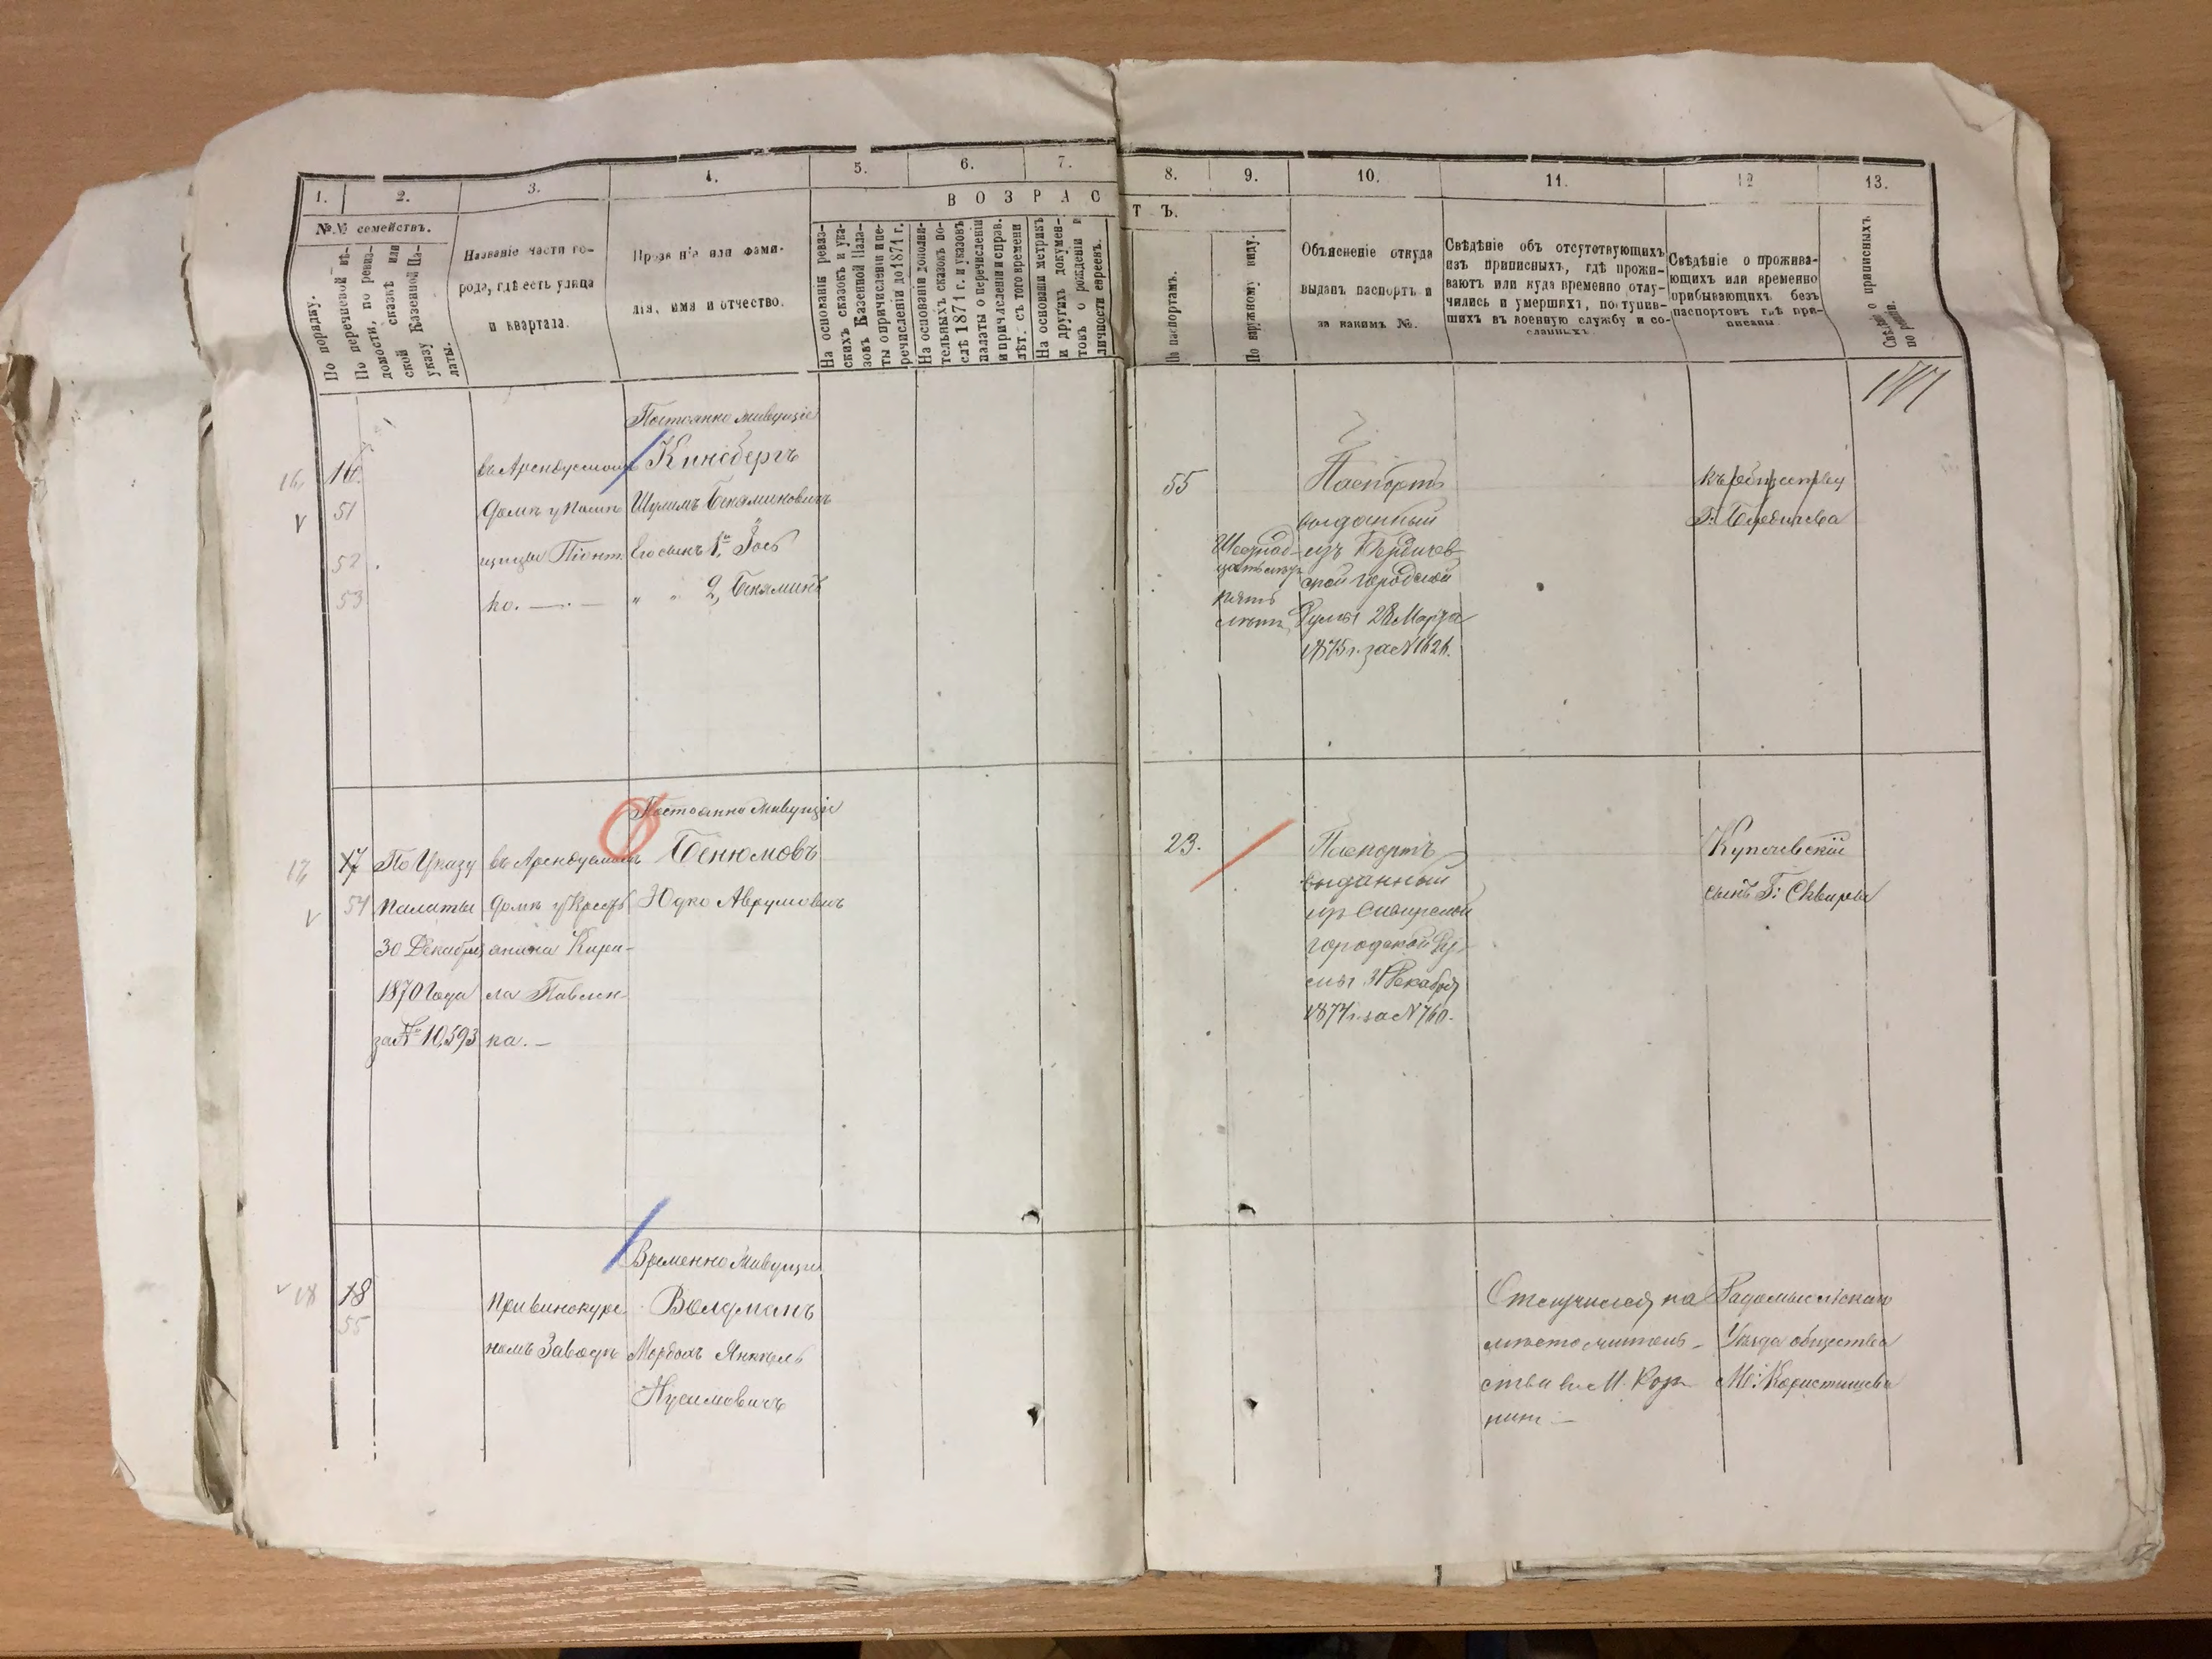 1. 2. 3. 4. 5. 6. 7. 8. 9. 10. 11. 12 13.
№№ семействъ.
В О З Р А С Т Ъ.
По порядку.
По перечневой вѣ-
домости, по ревиз-
ской сказкѣ или
указу Казенной Па-
латы.
Названіе части го-
рода, гдѣ есть улица
и квартала.
Прозваніе или фами-
лія, имя и отчество.
На основаніи ревиз-
скихъ сказокъ и ука-
зовъ Казенной Пала-
ты о причисленіи и пе-
речисленіи до 1871 г.
На основаніи дополни-
тельныхъ сказокъ по-
слѣ 1871 г. и указовъ
палаты о перечисленіи
и причисленіи и справ.
лѣт. съ того времени
На основаніи метрикъ
и другихъ докумен-
товъ о рожденіи и
личности евреевъ.
По паспортамъ.
По наружному виду.
Объясненіе откуда
выданъ паспортъ и
за какимъ №.
Свѣдѣніе объ отсутствующихъ
изъ приписныхъ, гдѣ прожи-
ваютъ или куда временно отлу-
чились и умершихъ, поступив-
шихъ въ военную службу и со-
сланныхъ.
Свѣдѣніе о прожива-
ющихъ или временно
прибывающихъ безъ
паспортовъ гдѣ при-
писаны.
Свѣдѣн. о приписныхъ
по ревизіи.
Постоянно живущіе
16 16.
51
52
53
въ Арендуемомъ
домѣ у помѣ-
щицы Піонт-
ко. —
Кинсбергъ
Шулимъ Беняминовичъ
Его сынъ 1й Іось
" " 2, Беняминъ
55
Шеснад-
цать
пять
лѣтъ
Паспортъ
выданный
изъ Бердичев-
ской городской
Думы 28 Марта
1875 г. за №1626.
къ обществу
Г. Бердичева
Постоянно живущіе
17 17
54
По Указу
Палаты
30 Декабря
1870 Года
за № 10,593
въ Арендуемомъ
домѣ у Кресть
янина Кири-
ла Павлен-
ка. —
Бенюмовъ
Юдко Аврумовичъ
23.
Паспортъ
выданный
изъ Сквирской
городской Ду-
мы 31 Декабря
1874 г. за №760.
Купечевскій
сынъ Г: Сквиры
Временно живущіе
18 18
55
При винокурен
номъ Заводѣ
Волдманъ
Мордохъ Янкель
Нусимовичъ
Отлучился на
мѣсто житель-
ства въ М.
Радомысльскаго
Уѣзда общества
М: Коростышева